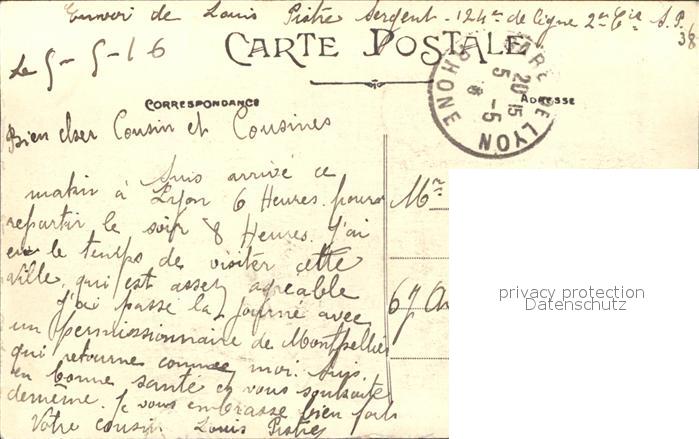 Envoi de Louis Pistre Sergent - 124e de ligne 2e Cie S.P.
38
CARTE POSTALE
Le 5-5-16
GARE DE LYON RHONE
20 15
5 -5
CORRESPONDANCE
ADRESSE
Bien cher Cousin et Cousines
Suis arrivé ce
matin à Lyon 6 Heures pour
repartir le soir 8 Heures. J'ai
eu le temps de visiter cette
ville, qui est assez agreable
J'ai passé la journé avec
un permissionnaire de Montpellier
qui retourne comme moi. Suis
en bonne santé et vous souhaite
demême. Je vous embrasse bien fort
Votre cousin Louis Pistre
Mr
67
privacy protection
Datenschutz